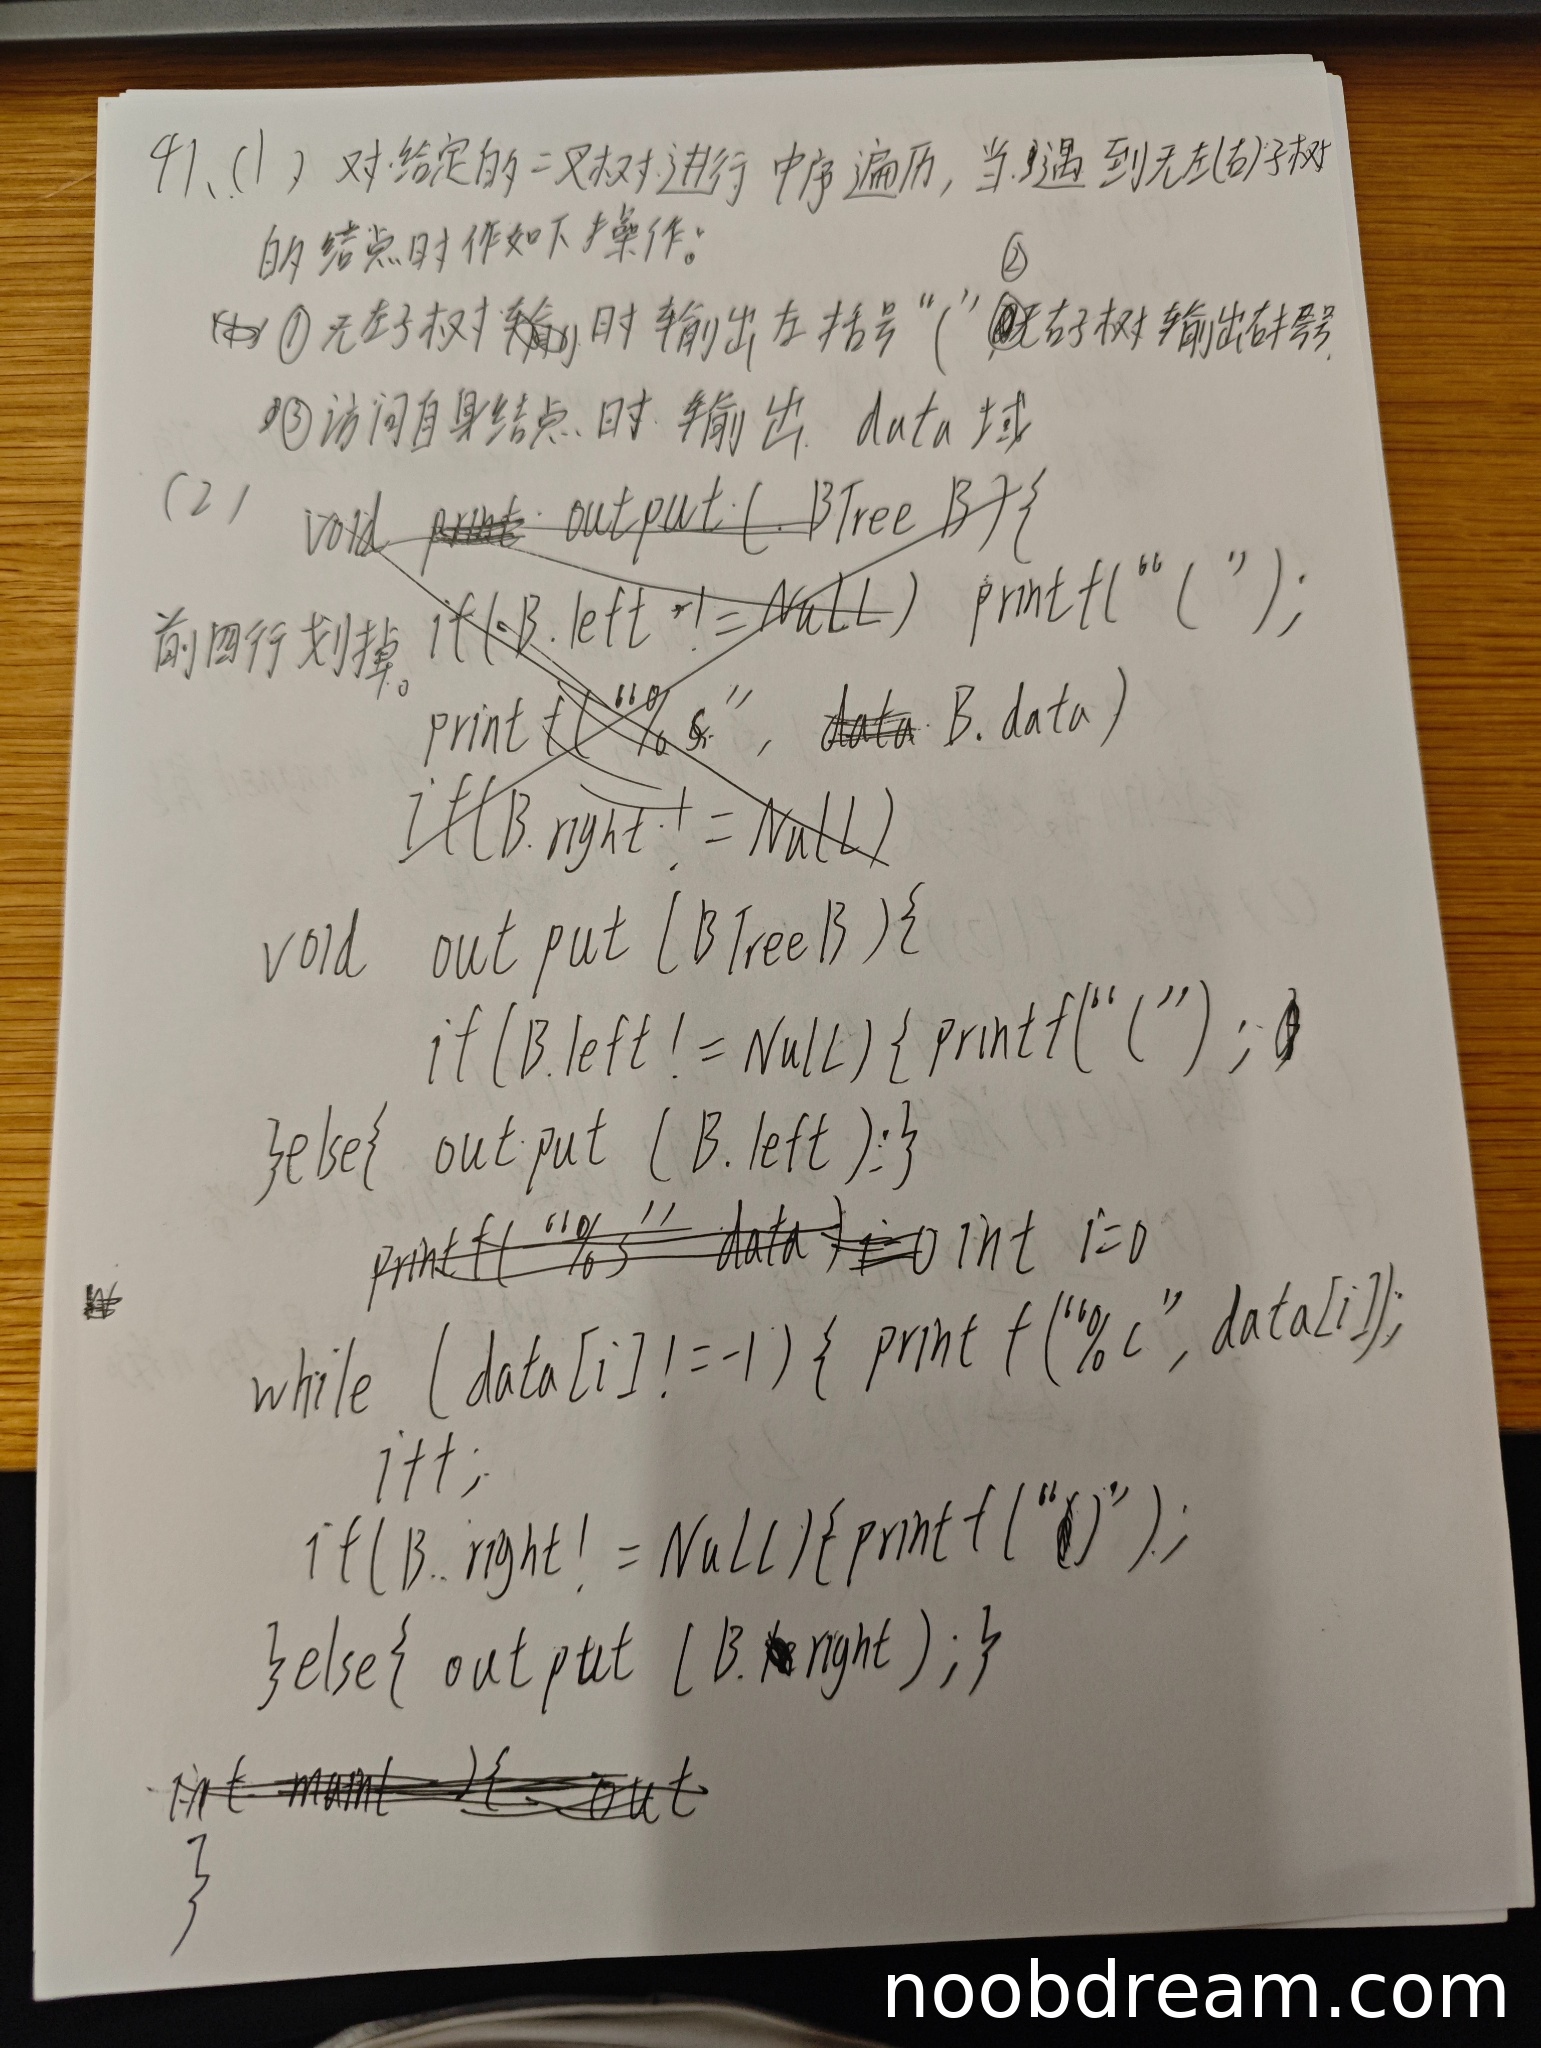 41、(1) 对给定的二叉树进行中序遍历，当遇到无左(右)子树
的结点时作如下操作：
②
①无左子树时输出左括号“(” 无右子树输出右括号
③访问自身结点时输出 data域
(2) void print output(BTree B){
前四行划掉。 if(B.left != NuLL) printf(“(”);
printf(“%s”, data B.data)
if(B.right != NuLL)
void output (BTree B){
if(B.left != NuLL){ printf(“(”);
}else{ output (B.left);}
printf(“%s” data) i=0 int i=0
while (data[i]!=-1){ printf(“%c”, data[i]);
i++;
if(B.right!=NuLL){printf(“)”);
}else{ output (B.right);}
int main( ){ out
}
noobdream.com